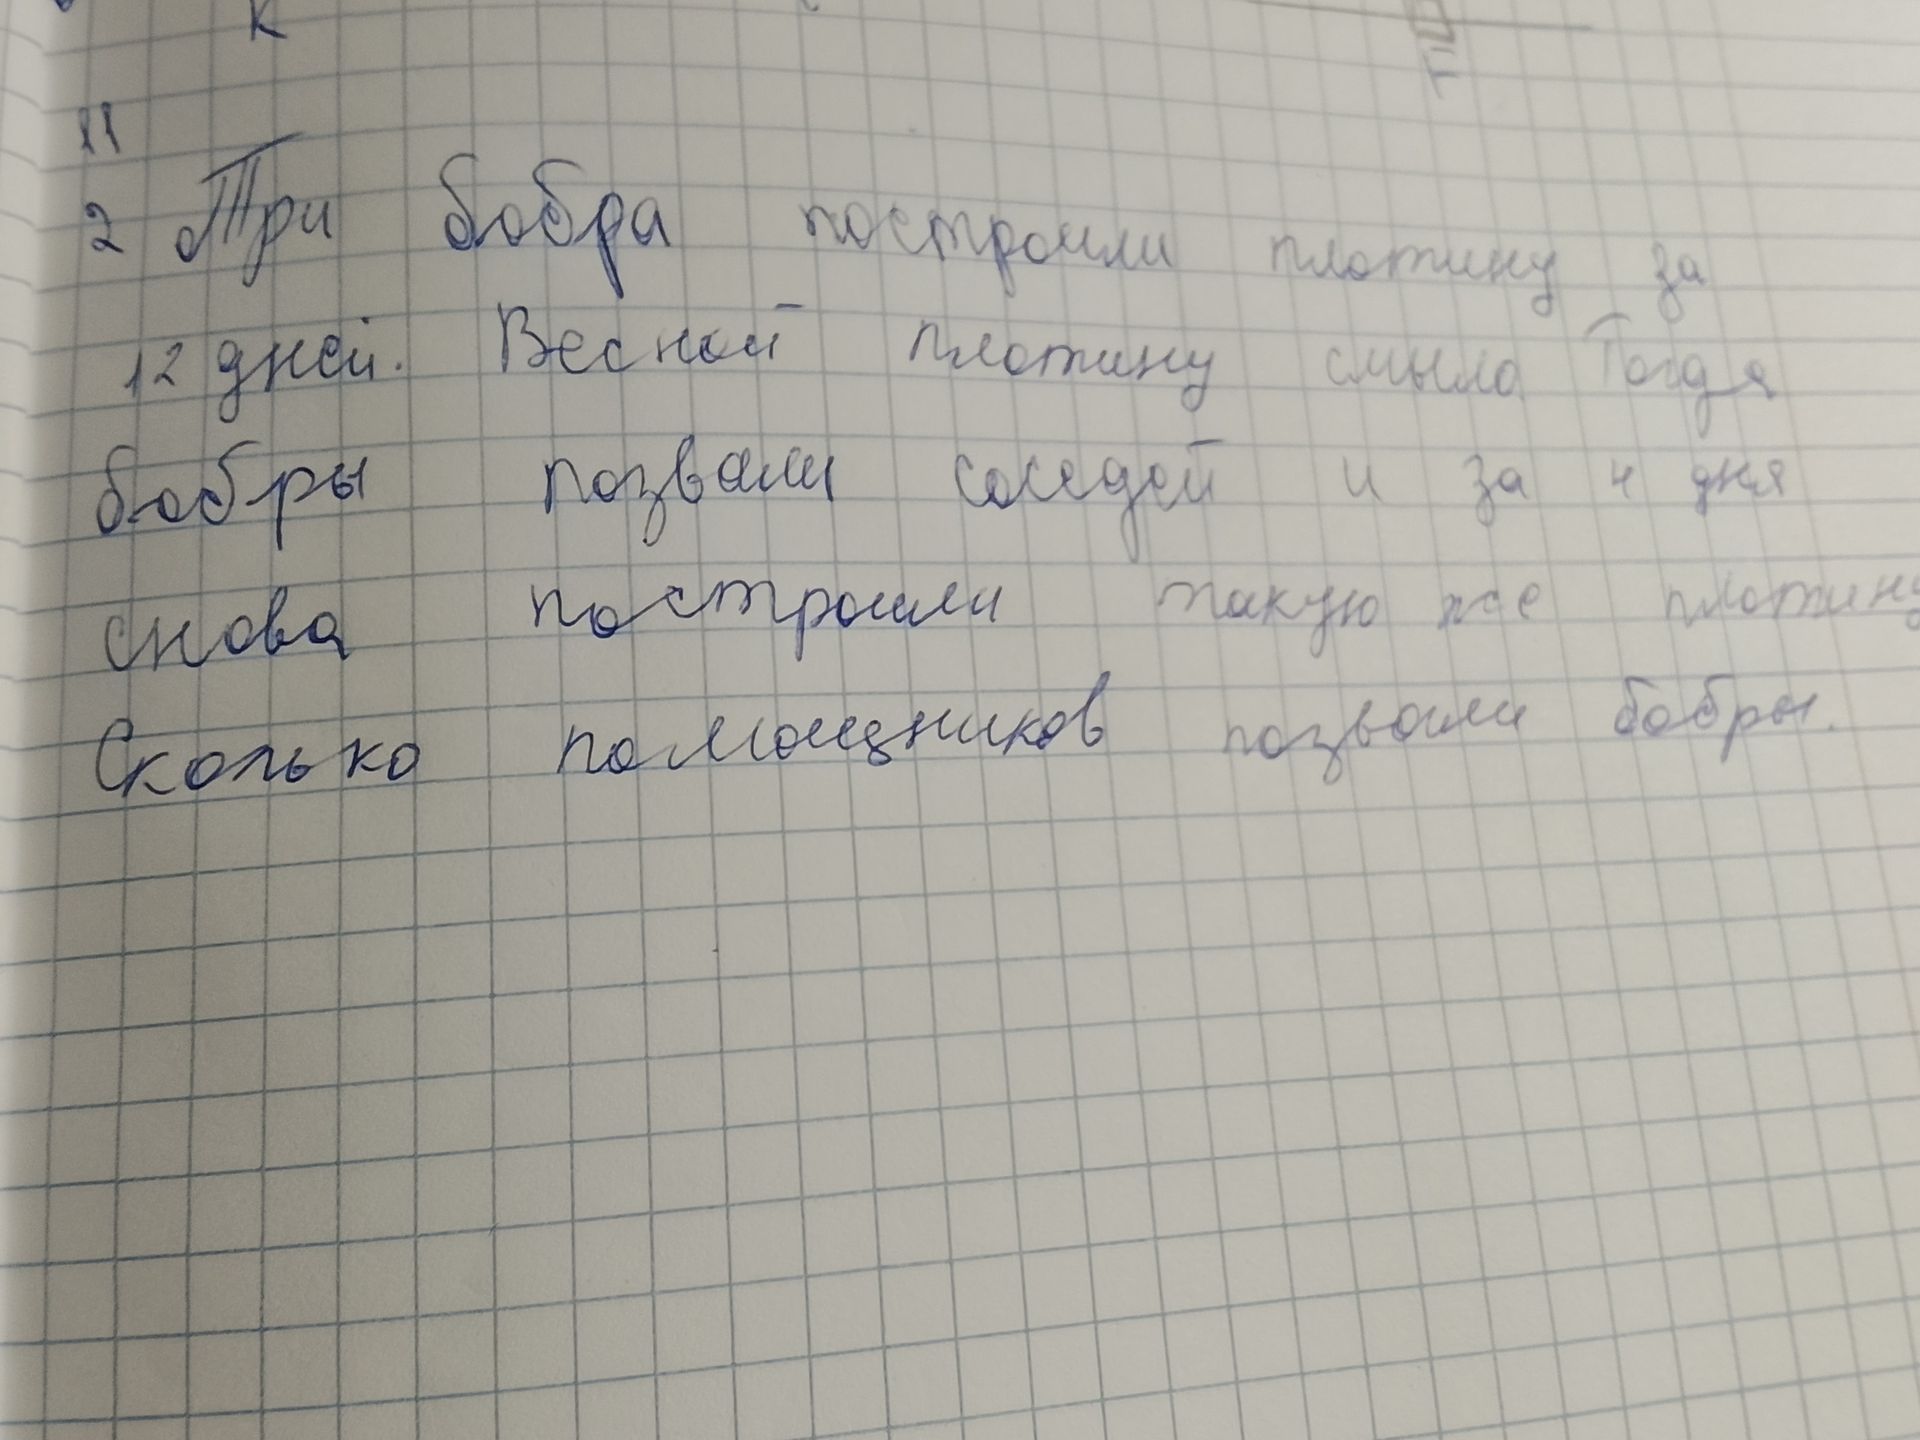 К
11
2 Три бобра построили плотину за
12 дней. Весной плотину смыло Тогда
бобры позвали соседей и за 4 дня
снова построили такую же плотину
Сколько помощников позвали бобры.